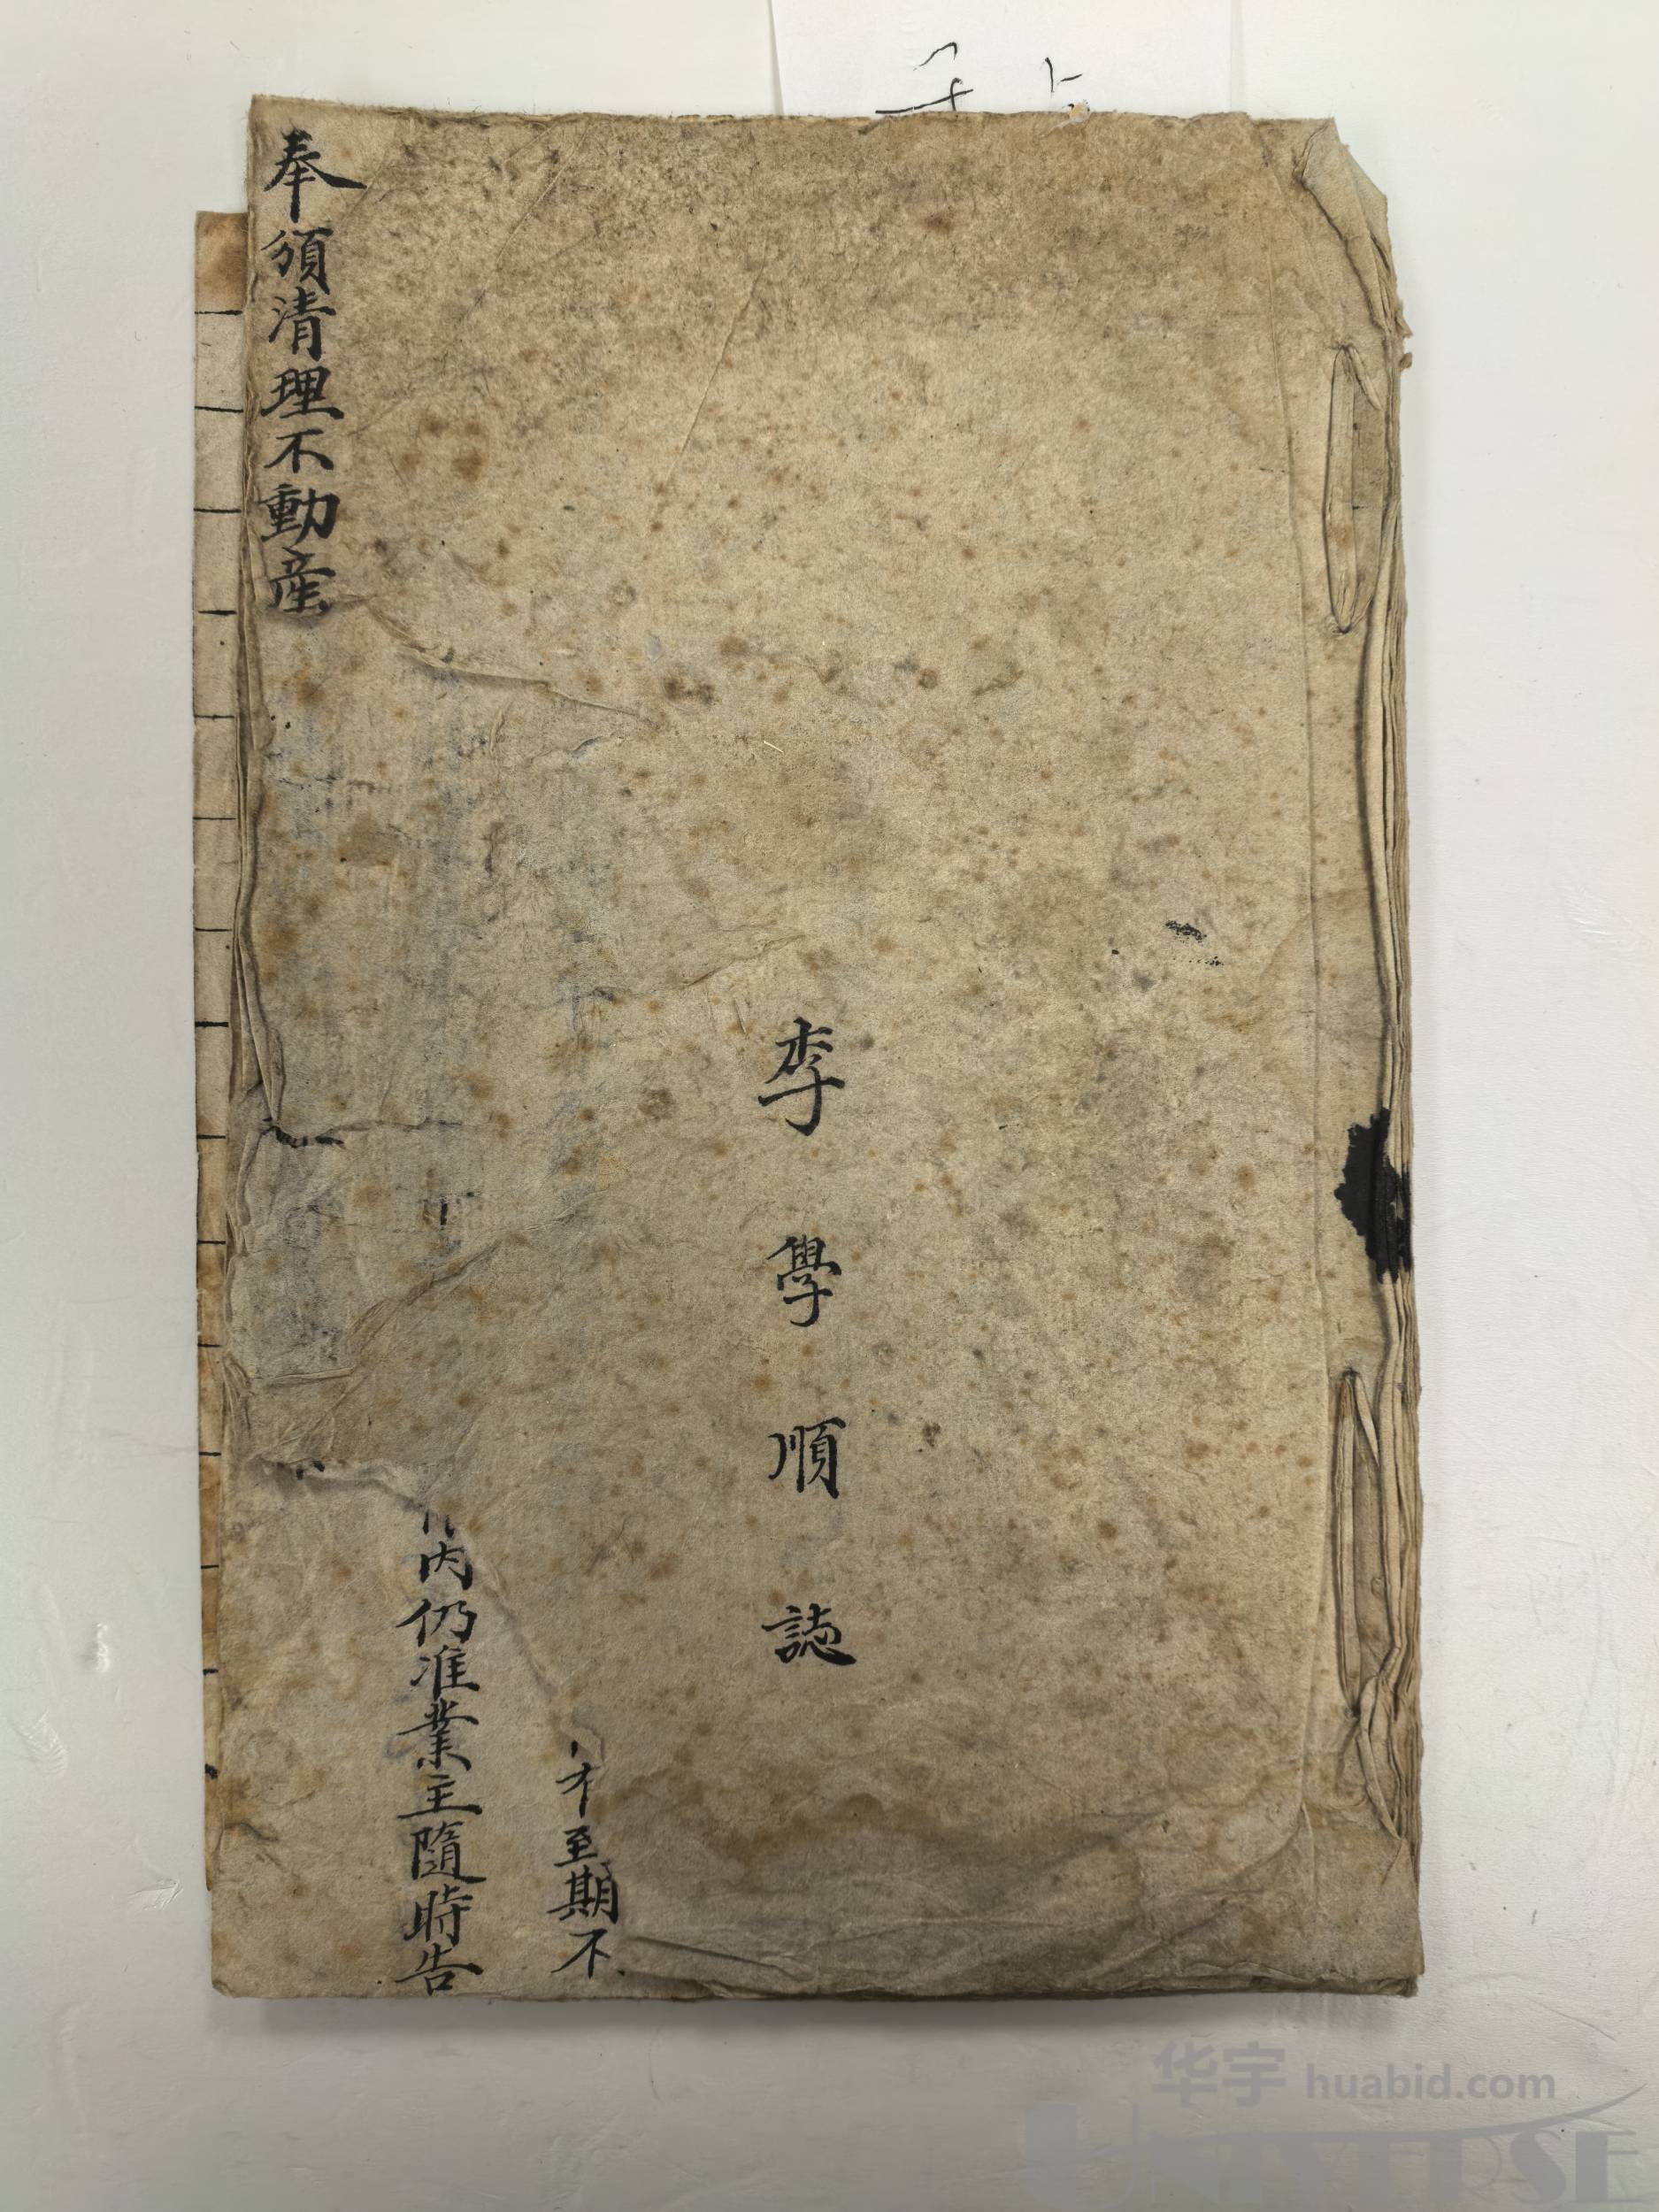 李學順誌
不至期不
內仍准業主隨時告
奉頒清理不動産
华宇 huabid.com
UNIVERSE